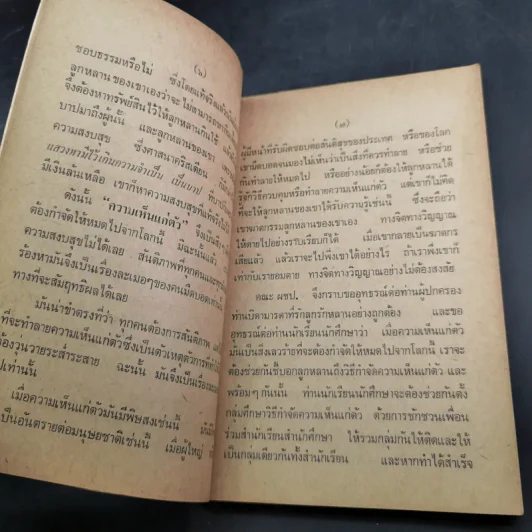 (๖)
ชอบธรรมหรือไม่ ซึ่งโดยแท้จริงแล้ว
ลูกหลานของเขาเองว่าจะไม่สามารถหา
จึงต้องหาทรัพย์สินไว้ให้ลูกหลานกินใช้
บาปมาถึงผู้นั้น และลูกหลานของเขา
ความสงบสุข ซึ่งศาสนาคริสเตียน
แสวงหามีไว้เกินความจำเป็น เป็นบาป
มีเงินล้นเหลือ เขาก็หาความสงบสุขที่แท้จริง
ดังนั้น “ความเห็นแก่ตัว” จึงเป็น
ต้องกำจัดให้หมดไปจากโลกนี้ มิฉะนั้นแล้ว
ความสงบสุขไม่ได้เลย สันติภาพที่ทุกคน
ร้องหามันจึงเป็นเรื่องละเมอๆของคนมืดบอด
ทางที่จะสัมฤทธิผลได้เลย
มันน่าขำตรงที่ว่า ทุกคนต้องการสันติภาพ
ที่จะทำลายความเห็นแก่ตัวซึ่งเป็นตัวเหตุตัวการ
ต้องวุ่นวายระส่ำระสาย ฉะนั้น มันจึงเป็นเรื่อง
ปเท่านั้น
เมื่อความเห็นแก่ตัวมันมีพิษสงเช่นนี้
เป็นอันตรายต่อมนุษยชาติเช่นนี้ เมื่อผู้ใหญ่
(๗)
ผู้มีหน้าที่รับผิดชอบต่อสันติสุขของประเทศ หรือของโลก
เขามืดบอดจนมองไม่เห็นว่าเป็นสิ่งที่ควรทำลาย หรือช่วย
กันทำลายให้หมดไป หรืออย่างน้อยก็ต้องให้ลูกหลานได้
รู้จักวิธีควบคุมหรือทำลายความเห็นแก่ตัว แต่เขาก็ไม่คิด
ที่จะให้ลูกหลานของเขาได้รับความรู้เช่นนี้ ซึ่งจะถือว่า
เขาฆาตกรรมลูกหลานของเขาเอง ทางจิตทางวิญญาณ
ให้ตายไปอย่างราบเรียบก็ได้ เมื่อเขากลายเป็นฆาตกร
เสียแล้ว แล้วเราจะไปพึ่งเขาได้อย่างไร ถ้าเราพึ่งเขาก็
เท่ากับเรายอมตาย ทางจิตทางวิญญาณอย่างไม่ต้องสงสัย
คณะ ผชป. จึงกราบขออุทธรณ์ต่อท่านผู้ปกครอง
ท่านบิดามารดาที่รักลูกรักหลานอย่างถูกต้อง และขอ
อุทธรณ์ต่อท่านนักเรียนนักศึกษาว่า เมื่อความเห็นแก่ตัว
มันเป็นสิ่งเลวร้ายที่จะต้องกำจัดให้หมดไปจากโลกนี้ เราจะ
ต้องช่วยกันชี้บอกลูกหลานถึงวิธีกำจัดความเห็นแก่ตัว และ
พร้อมๆกันนั้น ท่านนักเรียนนักศึกษาจะต้องช่วยกันตั้ง
กลุ่มศึกษาวิธีกำจัดความเห็นแก่ตัว ด้วยการชักชวนเพื่อน
ร่วมสำนักเรียนสำนักศึกษา ให้รวมกลุ่มกันให้ติดและให้
เป็นกลุ่มเดียวกันทั้งสำนักเรียน และหากทำได้สำเร็จ